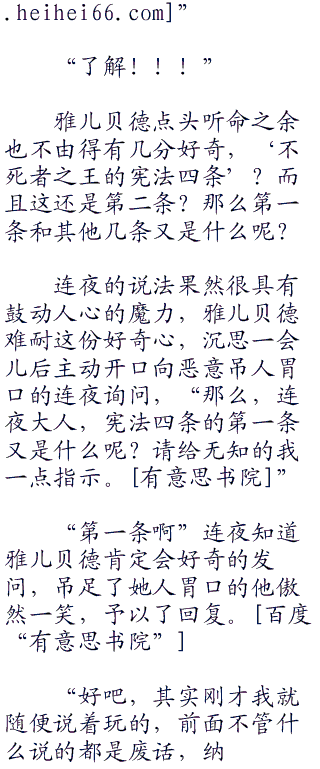 .heihei66.com]”
“了解！！！”
雅儿贝德点头听命之余
也不由得有几分好奇，‘不
死者之王的宪法四条’？而
且这还是第二条？那么第一
条和其他几条又是什么呢？
连夜的说法果然很具有
鼓动人心的魔力，雅儿贝德
难耐这份好奇心，沉思一会
儿后主动开口向恶意吊人胃
口的连夜询问，“那么，连
夜大人，宪法四条的第一条
又是什么呢？请给无知的我
一点指示。[有意思书院]”
“第一条啊”连夜知道
雅儿贝德肯定会好奇的发
问，吊足了她人胃口的他傲
然一笑，予以了回复。[百度
“有意思书院”]
“好吧，其实刚才我就
随便说着玩的，前面不管什
么说的都是废话，纳